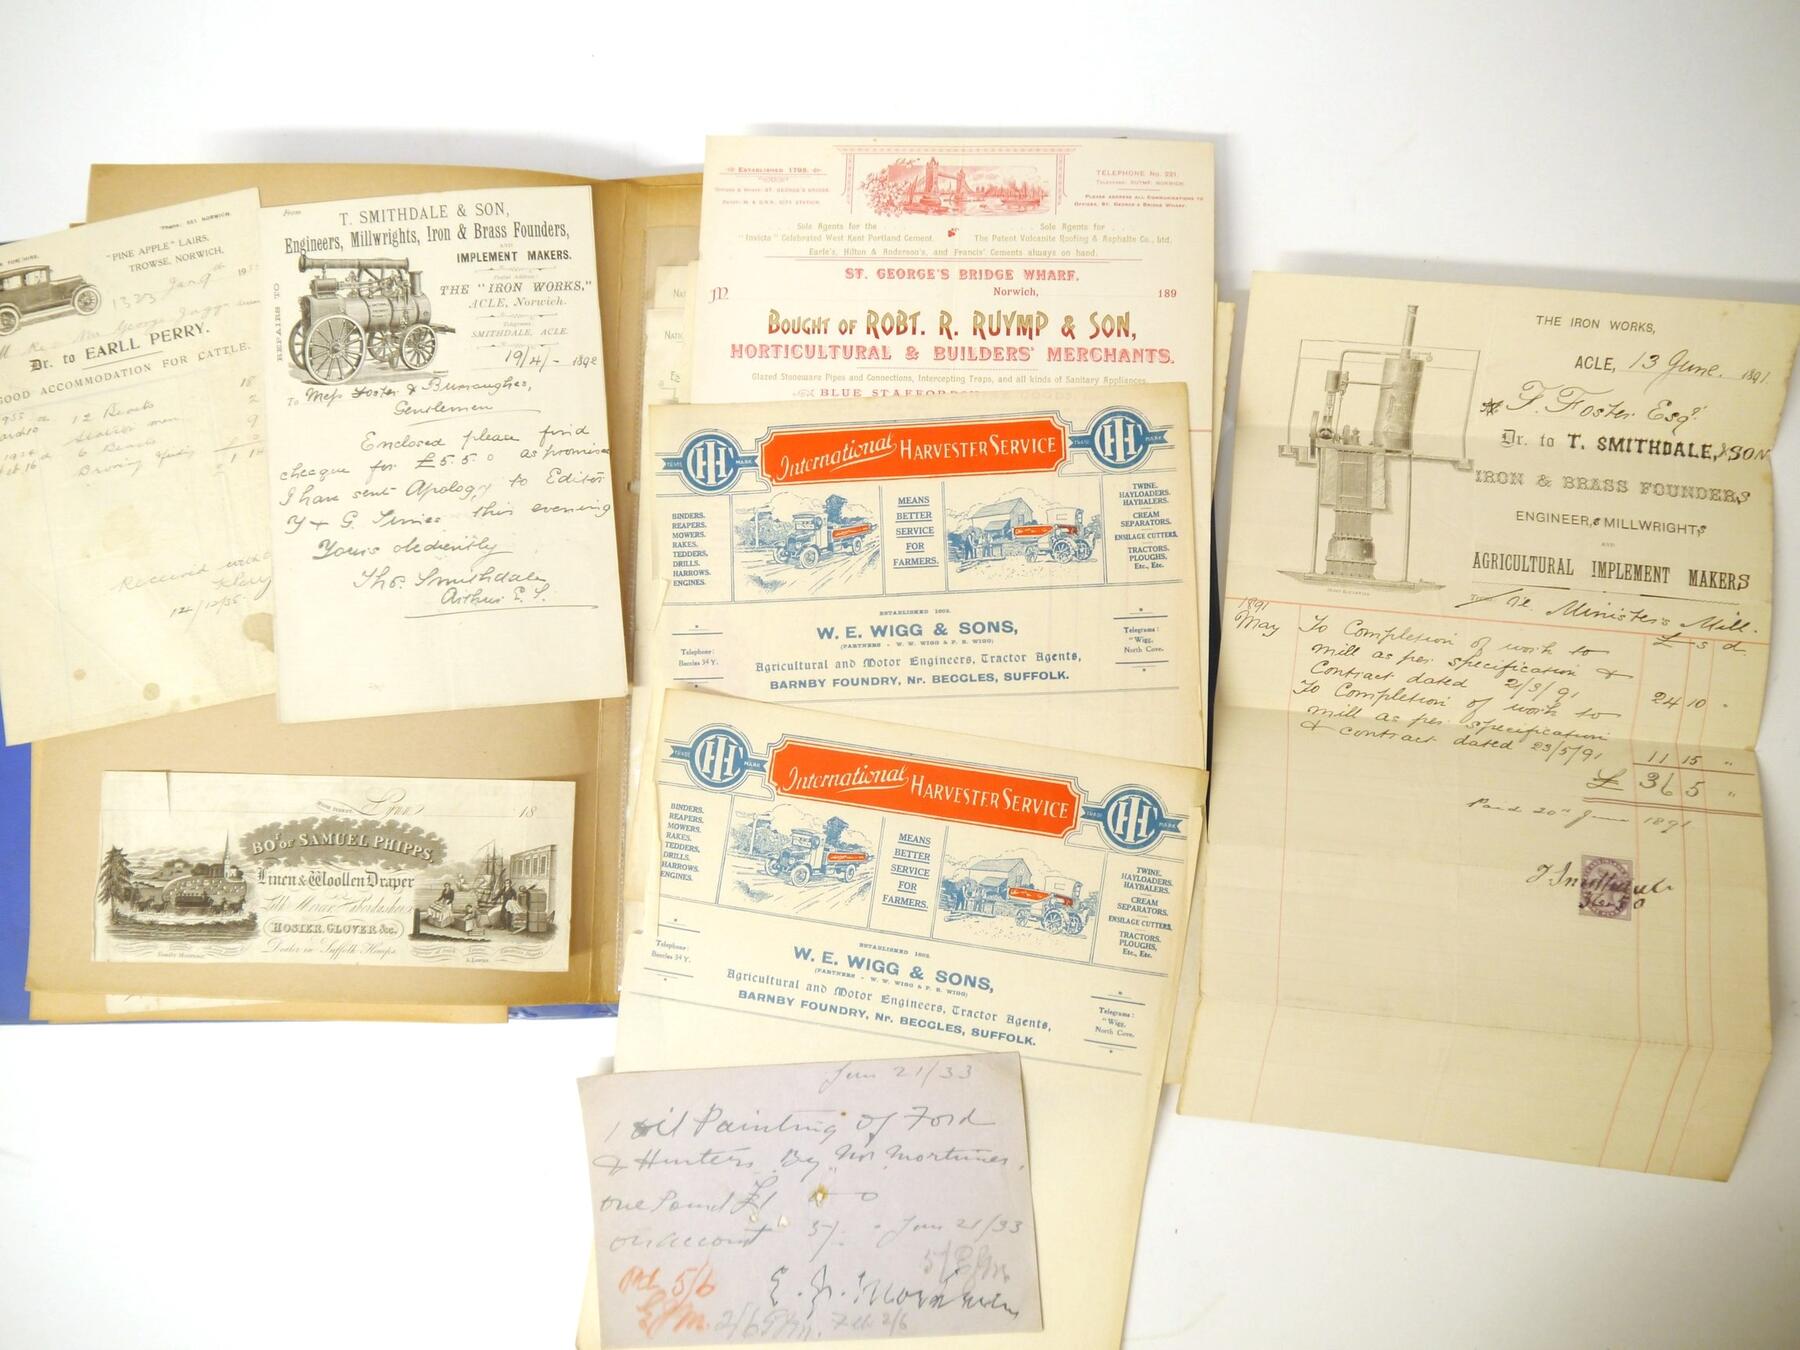 Phone: 551 NORWICH.
"PINE APPLE" LAIRS,
TROWSE, NORWICH,
1323 Jan 9th 195
Mr George Jagg
Dr. to EARLL PERRY.
GOOD ACCOMMODATION FOR CATTLE.
12 Beasts 18
2
6 Beasts 9
Received with
14/12/55
From
T. SMITHDALE & SON,
Engineers, Millwrights, Iron & Brass Founders,
AND
IMPLEMENT MAKERS.
Postal Address:
THE "IRON WORKS,"
ACLE, Norwich.
Telegrams:
SMITHDALE, ACLE.
REPAIRS TO
19/4/- 1892
To Mess Foster & Burroughes,
Gentlemen
Enclosed please find
cheque for £5.5.0 as promised
I have sent Apology to Editor
Y & G. Times this evening
Yours obediently
Thos. Smithdale
Arthur E. S.
Lynn 18
BOt. of SAMUEL PHIPPS,
Linen & Woollen Draper
Silk Mercer, Haberdasher
HOSIER, GLOVER &c.
Dealer in Suffolk Hemps.
ESTABLISHED 1798.
OFFICES & WHARF: ST. GEORGE'S BRIDGE.
DEPOT: M. & G.N.R. CITY STATION.
TELEPHONE No. 221.
TELEGRAMS: RUYMP, NORWICH.
PLEASE ADDRESS ALL COMMUNICATIONS TO
OFFICES, ST. GEORGE'S BRIDGE WHARF.
Sole Agents for the
"Invicta" Celebrated West Kent Portland Cement.
Sole Agents for
The Patent Volcanite Roofing & Asphalte Co., Ltd.
Earle's, Hilton & Anderson's, and Francis' Cements always on hand.
ST. GEORGE'S BRIDGE WHARF,
M Norwich, 189
BOUGHT OF ROBT. R. RUYMP & SON,
HORTICULTURAL & BUILDERS' MERCHANTS.
Glazed Stoneware Pipes and Connections, Intercepting Traps, and all kinds of Sanitary Appliances.
BLUE STAFFORDSHIRE GOODS
TRADE IHC MARK
International HARVESTER SERVICE
TRADE IHC MARK
BINDERS.
REAPERS.
MOWERS.
RAKES.
TEDDERS,
DRILLS.
HARROWS.
ENGINES.
MEANS
BETTER
SERVICE
FOR
FARMERS.
TWINE.
HAYLOADERS.
HAYBALERS.
CREAM
SEPARATORS.
ENSILAGE CUTTERS.
TRACTORS.
PLOUGHS,
Etc., Etc.
ESTABLISHED 1802.
W. E. WIGG & SONS,
(PARTNERS - W. W. WIGG & P. R. WIGG)
Agricultural and Motor Engineers, Tractor Agents,
BARNBY FOUNDRY, Nr. BECCLES, SUFFOLK.
Telephone:
Beccles 34 Y.
Telegrams:
"Wigg,
North Cove.
TRADE IHC MARK
International HARVESTER SERVICE
TRADE IHC MARK
BINDERS.
REAPERS.
MOWERS.
RAKES.
TEDDERS,
DRILLS.
HARROWS.
ENGINES.
MEANS
BETTER
SERVICE
FOR
FARMERS.
TWINE.
HAYLOADERS.
HAYBALERS.
CREAM
SEPARATORS.
ENSILAGE CUTTERS.
TRACTORS.
PLOUGHS,
Etc., Etc.
ESTABLISHED 1802.
W. E. WIGG & SONS,
(PARTNERS - W. W. WIGG & P. R. WIGG)
Agricultural and Motor Engineers, Tractor Agents,
BARNBY FOUNDRY, Nr. BECCLES, SUFFOLK.
Telephone:
Beccles 34 Y.
Telegrams:
"Wigg,
North Cove.
Jan 21/33
1 oil Painting of Ford
& Hunters By Mr Mortimer,
one Pound £1 0 0
on account 5/- Jan 21/33
Pd 5/6
E. J. Mortimer
2/6 Feb 2/6
THE IRON WORKS,
ACLE, 13 June 1891.
T. Foster Esqr
Dr. to T. SMITHDALE, & SON
IRON & BRASS FOUNDERS
ENGINEERS, MILLWRIGHTS
AND
AGRICULTURAL IMPLEMENT MAKERS
re Ministers Mill.
1891 £ s d
May To Completion of work to
mill as per specification &
Contract dated 21/3/91 24 10 "
To Completion of work to
mill as per specification
& contract dated 23/5/91 11 15 "
£ 36 5 "
Paid 20th June 1891
T Smithdale